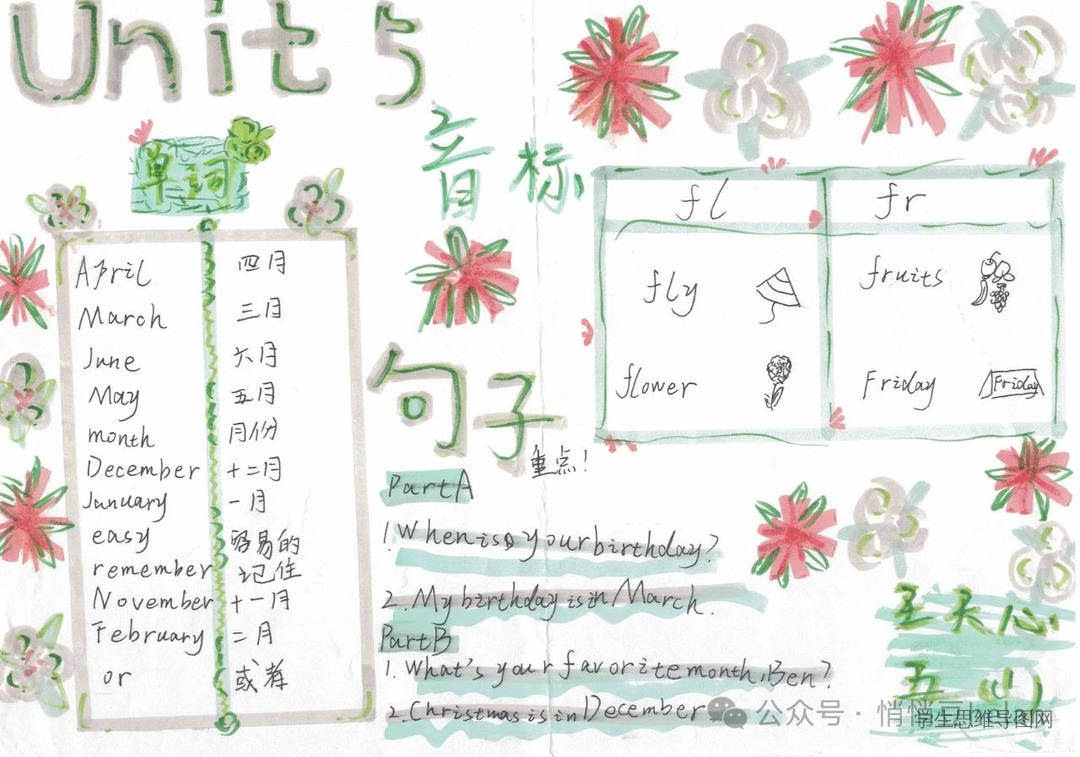 Unit 5
单词
April 四月
March 三月
June 六月
May 五月
month 月份
December 十二月
Junuary 一月
easy 容易的
remember 记住
November 十一月
February 二月
or 或者
音标
fl fr
fly fruits
flower Friday Friday
句子
重点!
Part A
1. When is your birthday?
2. My birthday is in March.
Part B
1. What's your favorite month, Ben?
2. Christmas is in December
王天心
五(1)
公众号·悄悄
学生思维导图网